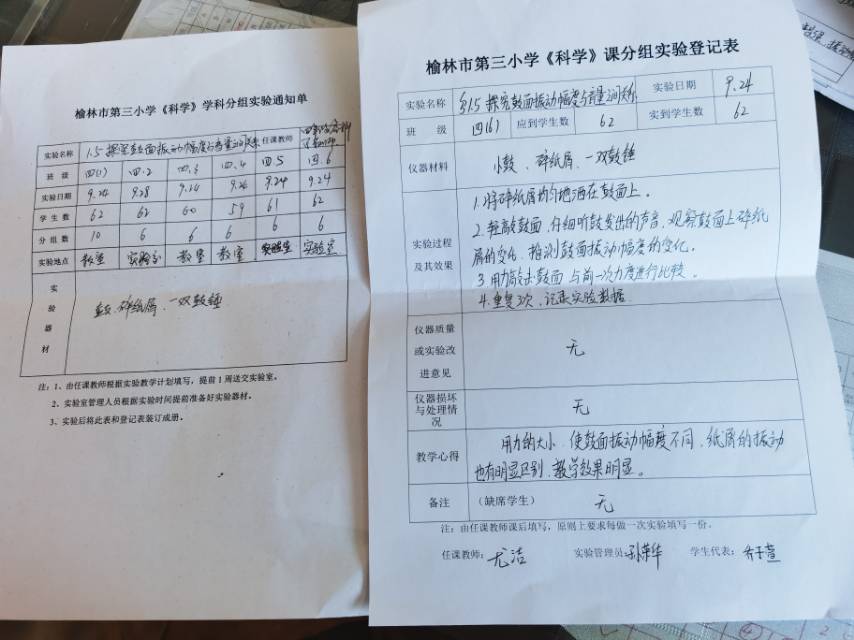 榆林市第三小学《科学》学科分组实验通知单
实验名称 1.5 探究鼓面振动幅度与音量间关系 任课教师
班级 四(1) 四.2 四.3 四.4 四.5 四.6
实验日期 9.24 9.28 9.24 9.26 9.24 9.24
学生数 62 62 60 59 61 62
分组数 10 6 6 6 6 6
实验地点 教室 实验室 教室 教室 实验室 实验室
实验器材 鼓、碎纸屑、一双鼓锤
注：1、由任课教师根据实验教学计划填写，提前1周送交实验室。
2、实验室管理人员根据实验时间提前准备好实验器材。
3、实验后将此表和登记表装订成册。
榆林市第三小学《科学》课分组实验登记表
实验名称 §1.5 探究鼓面振动幅度与音量间关系 实验日期 9.24
班级 四(6) 应到学生数 62 实到学生数 62
仪器材料 小鼓、碎纸屑、一双鼓锤
实验过程及其效果
1.将碎纸屑均匀地洒在鼓面上。
2.轻敲鼓面,仔细听鼓发出的声音,观察鼓面上碎纸
屑的变化,推测鼓面振动幅度的变化。
3.用力敲击鼓面与前一次力度进行比较。
4.重复3次,记录实验数据
仪器质量或实验改进意见 无
仪器损坏与处理情况 无
教学心得 用力的大小,使鼓面振动幅度不同,纸屑的振动
也有明显区别,教学效果明显。
备注 (缺席学生) 无
注：由任课教师课后填写，原则上要求每做一次实验填写一份。
任课教师: 尤洁 实验管理员: 孙荣华 学生代表: 乔子萱